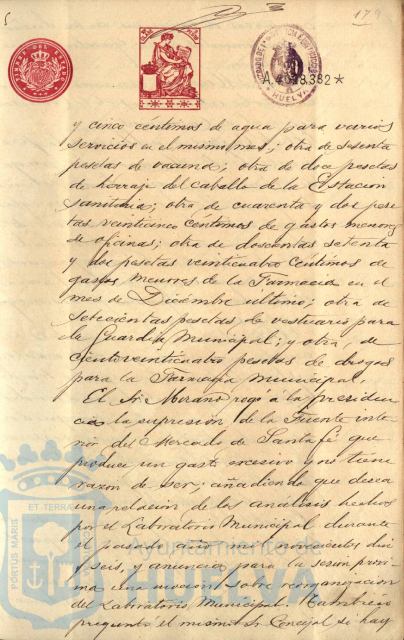 179
TIMBRE DEL ESTADO
JUZGADO DE 1ª INSTANCIA
HUELVA
A.
382*
y cinco céntimos de agua para varios
servicios en el mismo mes; otra de sesenta
pesetas de vacuna; otra de doce pesetas
de herraje del caballo de la Estacion
Sanitaria; otra de cuarenta y dos pese
tas veinticinco céntimos de gastos menores
de oficinas; otra de doscientas setenta
y dos pesetas veinticuatro céntimos de
gastos menores de la Farmacia en el
mes de Diciembre ultimo; otra de
setecientas pesetas de vestuario para
la Guardia Municipal; y otra, de
ciento veinticuatro pesetas de drogas
para la Farmacia Municipal.
El Sr. rogó a la presiden
cia la supresión de la Fuente inte
rior del Mercado de Santa Fé que
produce un gasto excesivo y no tiene
razon de ser; añadiendo que desea
una relacion de los análisis hechos
por el Laboratorio Municipal durante
el pasado año mil novecientos diez
y seis, y anuncia para la sesion próxi
ma una mocion sobre reorganizacion
del Laboratorio Municipal. Tambien
preguntó el mismo Sr. Concejal se hay
PORTUS MARIS ET TERRAE CUSTODIA
Ayuntamiento de
HUELVA